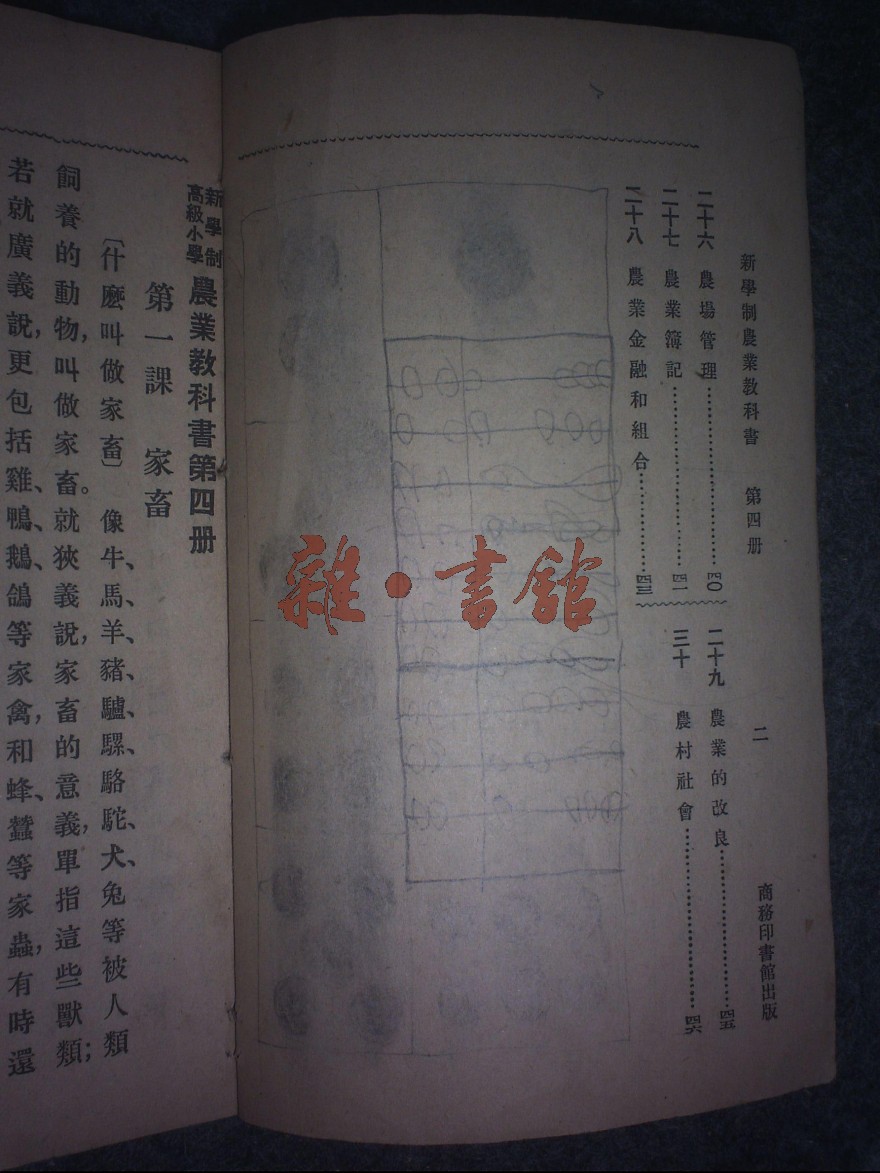 新學制農業教科書 第四册 二 商務印書館出版
二十六 農場管理……四〇
二十七 農業簿記……四一
二十八 農業金融和組合……四三
二十九 農業的改良……四五
三十 農村社會……四六
雜·書館
新學制
高級小學
農業教科書第四册
第一課 家畜
〔什麼叫做家畜〕 像牛、馬、羊、豬、驢、騾、駱駝、犬、兔等被人類
飼養的動物,叫做家畜。就狹義說,家畜的意義,單指這些獸類;
若就廣義說,更包括雞、鴨、鵝、鴿等家禽,和蜂、蠶等家蟲,有時還